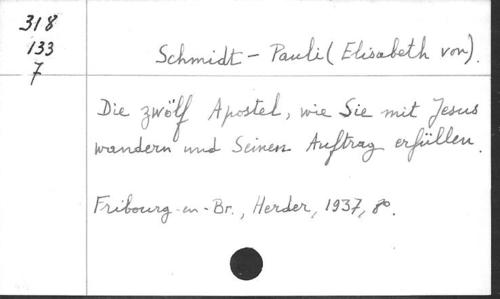 318
133
7
Schmidt - Pauli (Elisabeth von).
Die zwölf Apostel, wie Sie mit Jesus
wandern und Seinen Auftrag erfüllen.
Fribourg-en-Br., Herder, 1937, 8º.